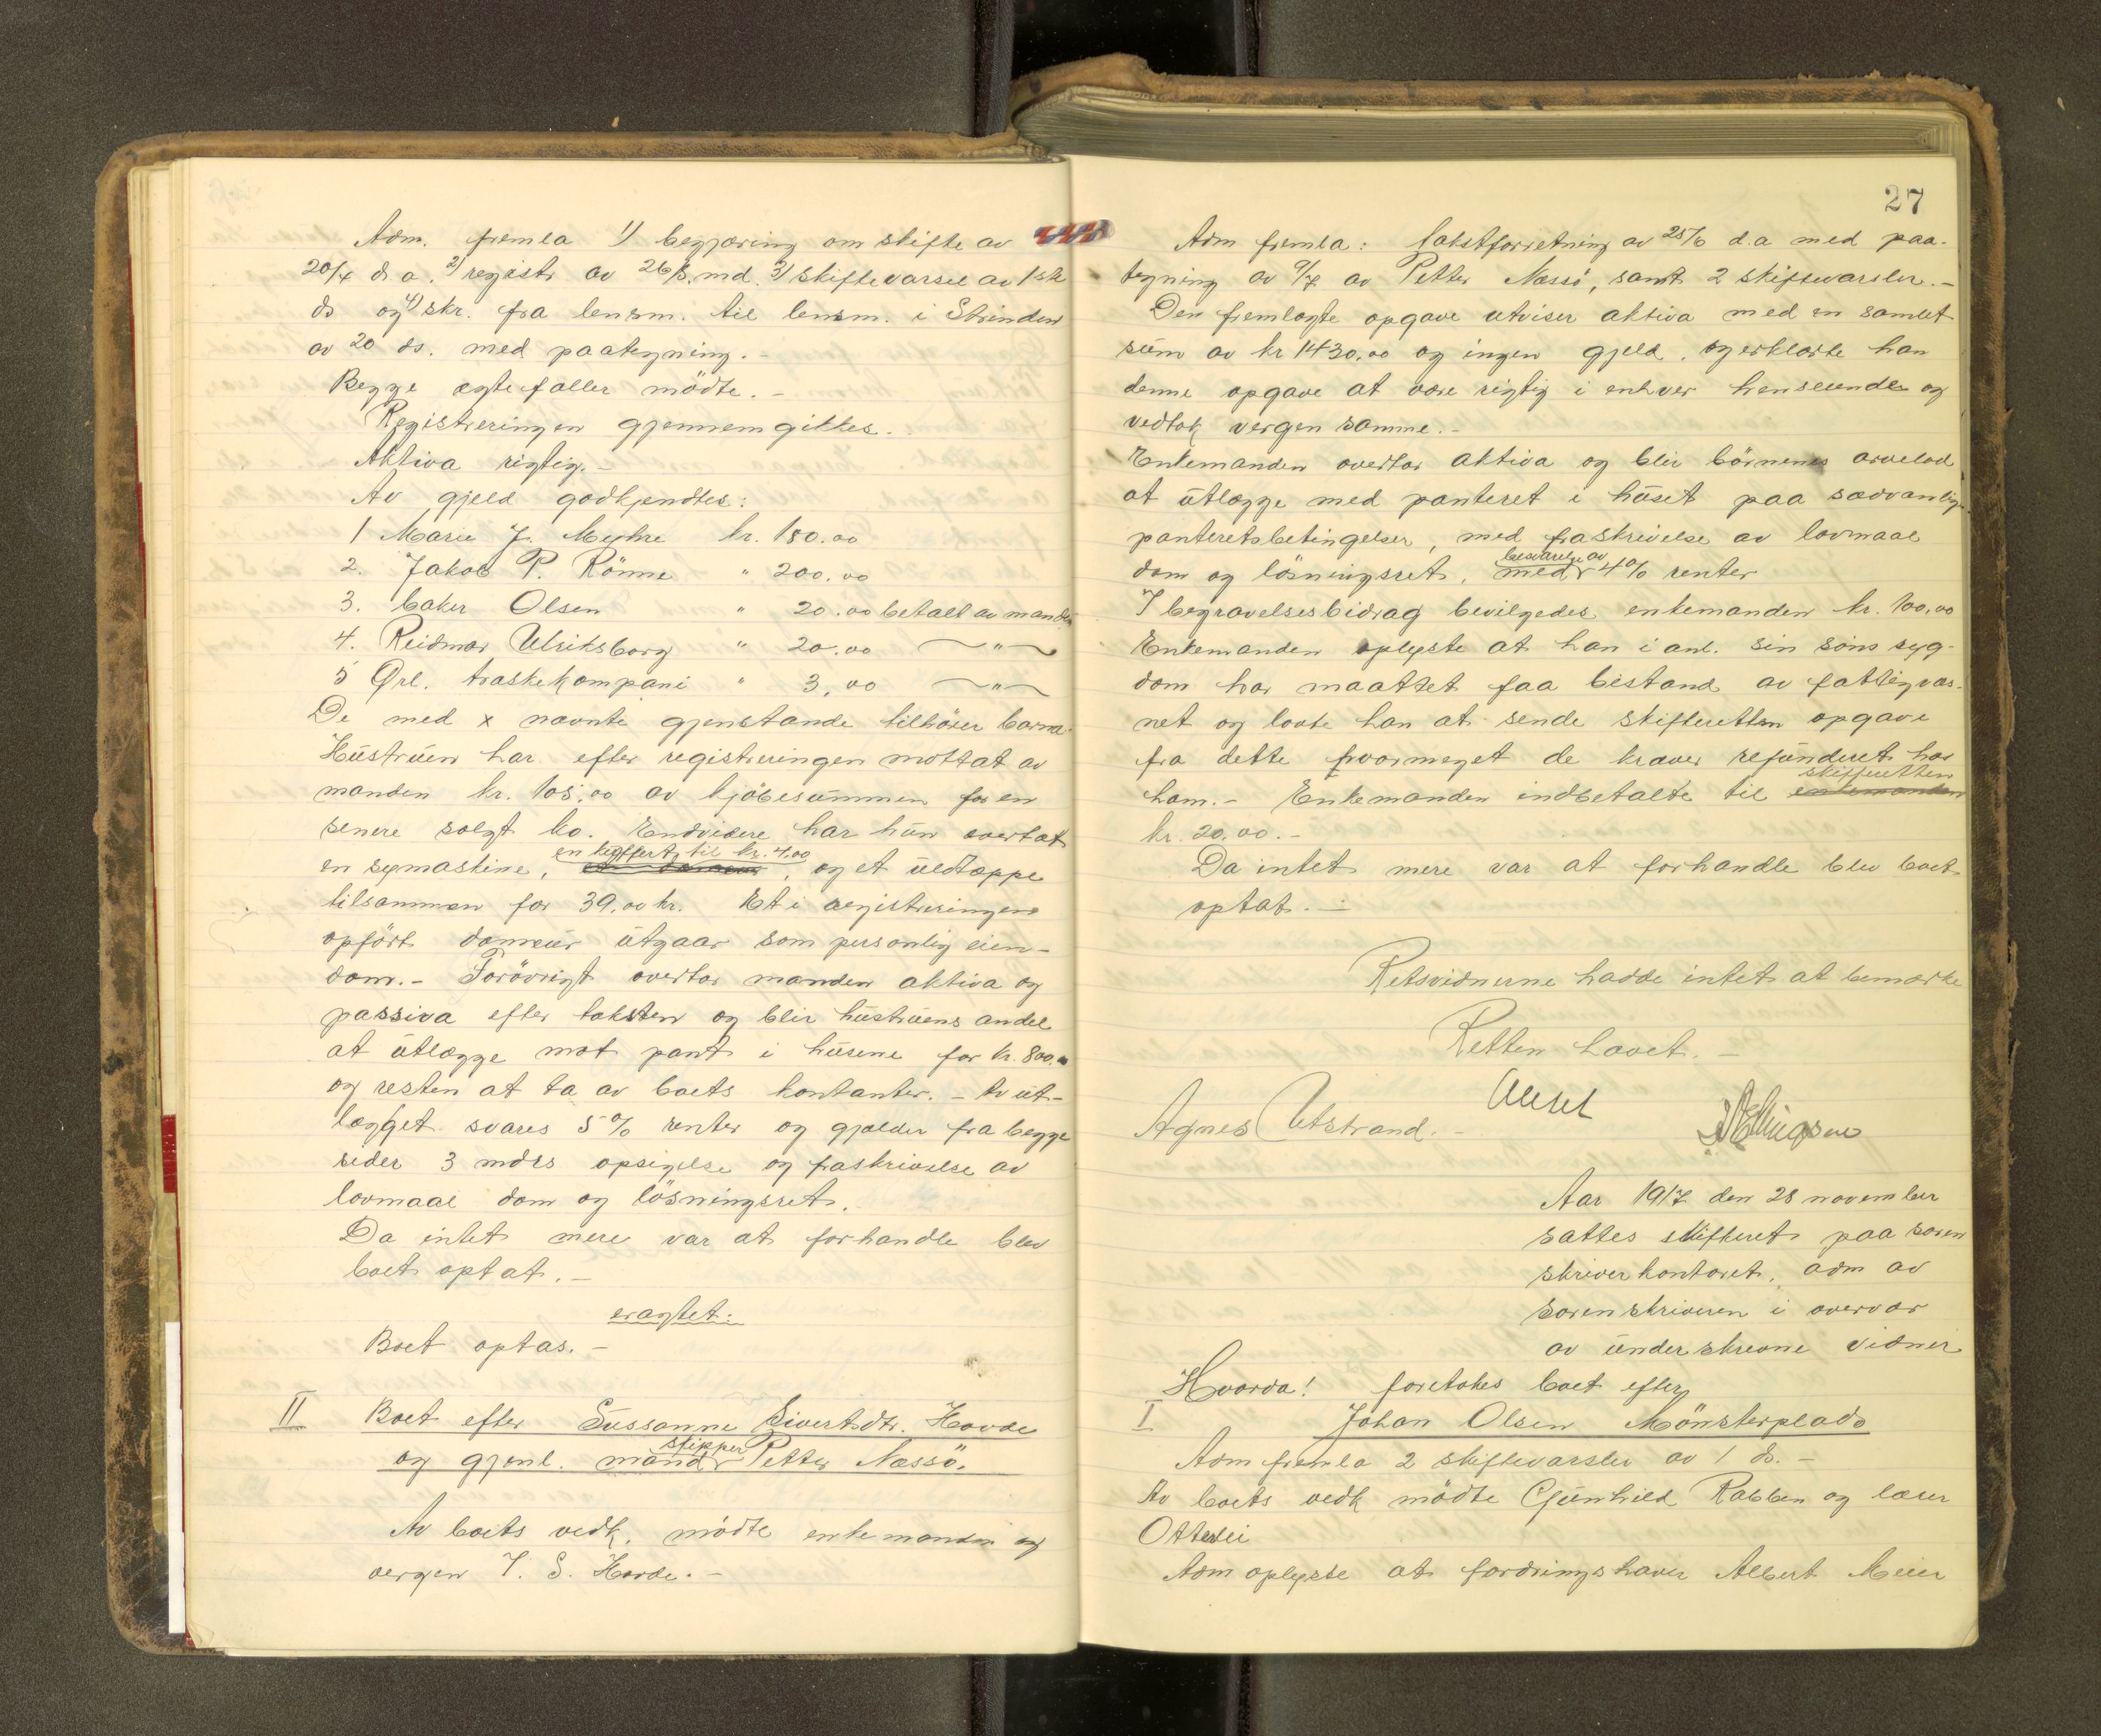 Adm. fremla 1) begjæring om skifte av
20/4 d. a. 2) registr av 26/s. md. 3) skiftevarsel av 1ste
ds og 4) skr. fra lensm. til lensm. i Strinden
av 20 ds. med paategning. -
Begge ægtefæller mödte. -
Registreringen gjennemgikkes.
Aktiva rigtig. -
Av gjeld godkjendtes:
1 Marie J. Myhre kr. 180.00
2. Jakob P. Rönne " 200.00
3. baker Olsen " 20.00 betalt av manden
4. Reidmar Ulriksborg " 20.00 — " —
5 Ørl. træskekompani " 3,00 — " —
De med x nævnte gjenstande tilhörer barna.
Hustruen har efter registreringen mottat av
manden kr. 105,00 av kjöbesummen for en
senere solgt ko. Endvidere har hun overtat
en symaskine, en kuffert, til kr. 4.00, og et uldtæppe
tilsammen for 39,00 kr. Et i registreringen
opfört dameur utgaar som personlig eien-
dom. - Forövrigt overtar manden aktiva og
passiva efter taksten og blir hustruens andel
at utlægge mot pant i husene for kr. 800.00
og resten at ta av boets kontanter. - Av ut-
lægget svares 5 % renter og gjælder fra begge
sider 3 mdrs opsigelse og fraskrivelse av
lovmaal dom og lösningsret.
Da intet mere var at forhandle blev
boet optat. -
eragtet:
Boet optas. -
II Boet efter Sussanne Sivertsdtr. Hovde
og gjenl. mand skipper Petter Næssö.
Av boets vedk. mödte enkemanden og
vergen J. S. Hovde. -
27
Adm fremla: takstforretning av 25/6 d.a med paa-
tegning av 9/7 av Petter Næssö, samt 2 skiftevarsler. -
Den fremlagte opgave utviser aktiva med en samlet
sum av kr 1430,00 og ingen gjeld, og erklærte han
denne opgave at være rigtig i enhver henseende og
vedtok vergen samme. -
Enkemanden overtar aktiva og blir börnenes arvelod
at utlægge med panteret i huset paa sædvanlige
panteretsbetingelser, med fraskrivelse av lovmaal
dom og lösningsret, med besvarelse av 4% renter
I begravelsesbidrag bevilgedes enkemanden kr. 100,00
Enkemanden oplyste at han i anl. sin söns syg-
dom har maattet faa bistand av fattigvæs-
net og lovte han at sende skifteretten opgave
fra dette hvormeget de kræver refunderet hos
ham. - Enkemanden indbetalte til enkemanden skifteretten
kr. 20.00. -
Da intet mere var at forhandle blev boet
optat. -
Retsvidnerne hadde intet at bemærke
Retten hævet. -
Agnes Utstrand. - Ellingsen
Aar 1917 den 28 november
sattes skifteret paa soren
skriverkontoret, adm av
sorenskriveren i overvær
av underskrevne vidner
Hvorda! foretokes boet efter
I Johan Olsen Mönsterplads
Adm fremla 2 skiftevarsler av 1 ds. -
Av boets vedk mödte Gunhild Rabben og lærer
Ottesli
Adm oplyste at fordringshaver Albert Meier